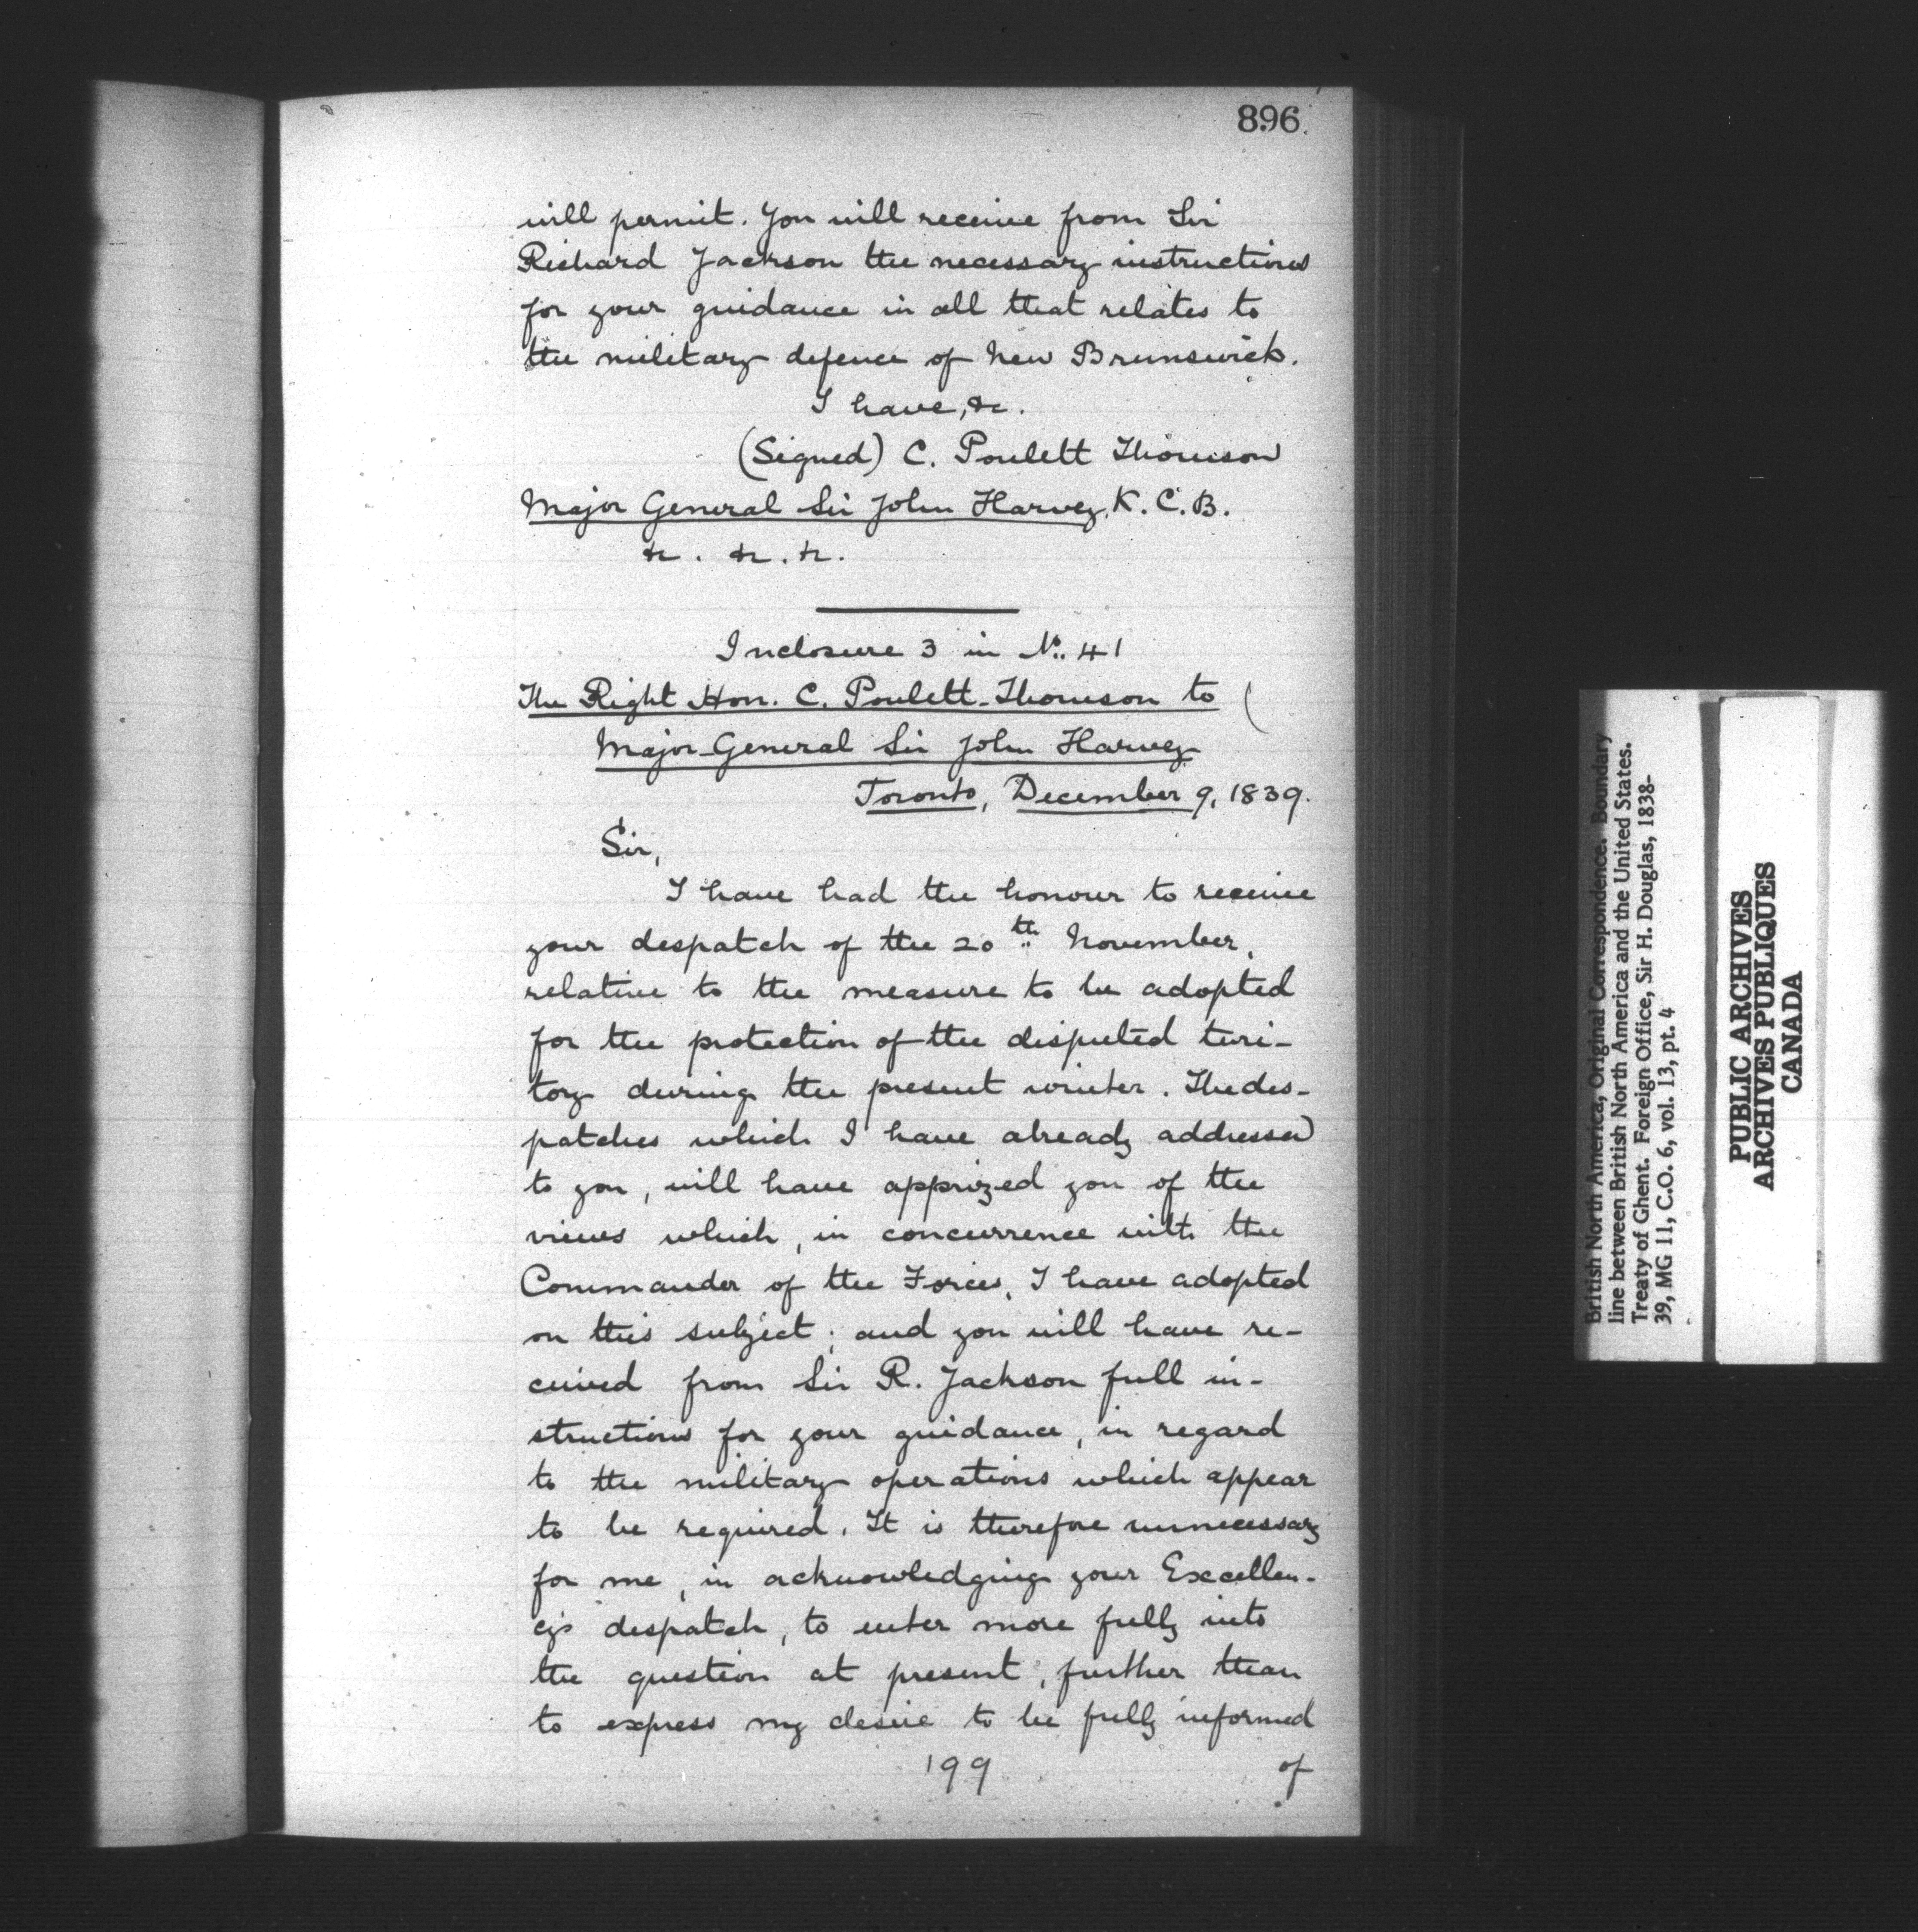 896.
will permit. You will receive from Sir
Richard Jackson the necessary instructions
for your guidance in all that relates to
the military defence of New Brunswick.
I have, &c.
(Signed) C. Poulett Thomson
Major General Sir John Harvey, K.C.B.
&c. &c. &c.
Inclosure 3 in No. 41
The Right Hon. C. Poulett-Thomson to
Major-General Sir John Harvey
Toronto, December 9, 1839.
Sir,
I have had the honour to receive
your despatch of the 20th November,
relative to the measure to be adopted
for the protection of the disputed terri-
tory during the present winter. The des-
patches which I have already addressed
to you, will have apprized you of the
views which, in concurrence with the
Commander of the Forces, I have adopted
on this subject; and you will have re-
ceived from Sir R. Jackson full in-
structions for your guidance, in regard
to the military operations which appear
to be required. It is therefore unnecessary
for me, in acknowledging your Excellen-
cy's despatch, to enter more fully into
the question at present, further than
to express my desire to be fully informed
199
of
British North America, Original Correspondence. Boundary
line between British North America and the United States.
Treaty of Ghent. Foreign Office, Sir H. Douglas, 1838-
39, MG 11, C.O. 6, vol. 13, pt. 4
PUBLIC ARCHIVES
ARCHIVES PUBLIQUES
CANADA